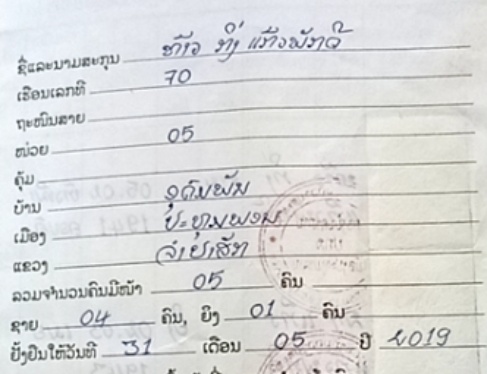 ຊື່ແລະນາມສະກຸນ ທ້າວ ກິ່ງ ແກ້ວພັກວີ
ເຮືອນເລກທີ 70
ຖະໜົນສາຍ
ໜ່ວຍ 05
ຄຸ້ມ
ບ້ານ ອຸດົມພັນ
ເມືອງ ປະທຸມພອນ
ແຂວງ ຈຳປາສັກ
ລວມຈຳນວນຄົນມີໜ້າ 05 ຄົນ
ຊາຍ 04 ຄົນ, ຍິງ 01 ຄົນ
ຢັ້ງຢືນໃຫ້ວັນທີ 31 ເດືອນ 05 ປີ 2019